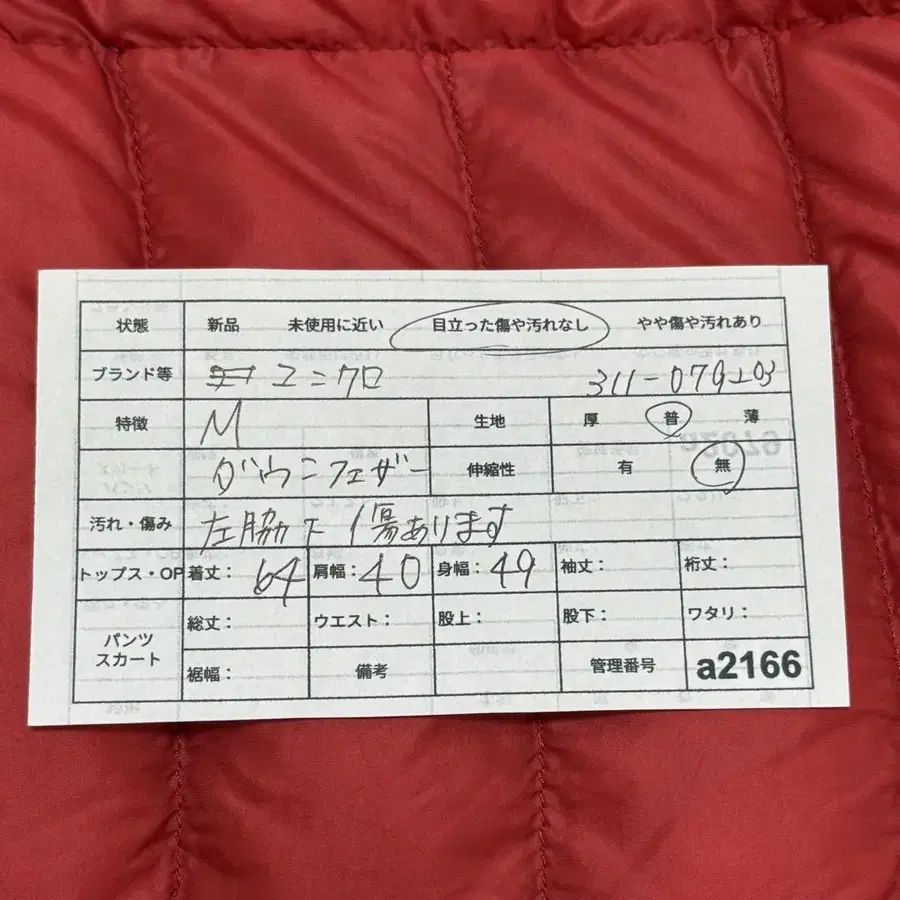 状態 新品 未使用に近い 目立った傷や汚れなし やや傷や汚れあり
ブランド等 ユニクロ 311-079
特徴 M 生地 厚 普 薄
ダウンフェザー 伸縮性 有 無
汚れ・傷み 左脇下 傷あります
トップス・OP 着丈: 64 肩幅: 40 身幅: 49 袖丈: 裄丈:
パンツ スカート 総丈: ウエスト: 股上: 股下: ワタリ:
裾幅: 備考 管理番号 a2166